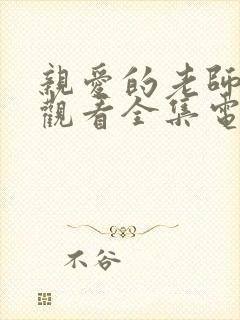 親愛的老師
觀看全集電
不谷